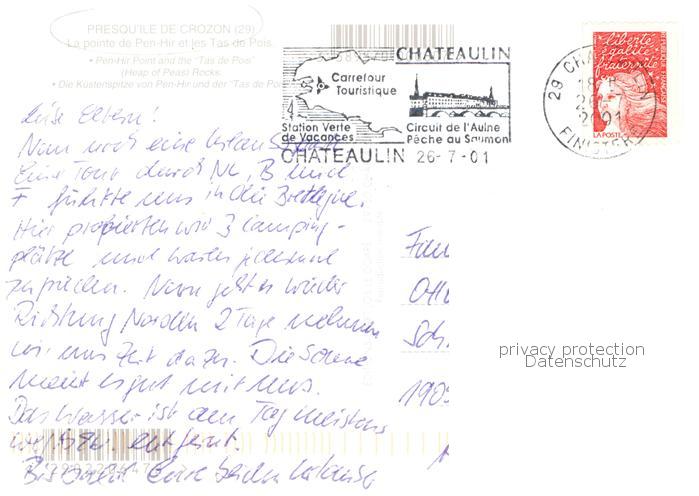 PRESQU'ILE DE CROZON (29)
La pointe de Pen-Hir et les Tas de Pois.
• Pen-Hir Point and the "Tas de Pois"
(Heap of Peas) Rocks.
• Die Küstenspitze von Pen-Hir und der "Tas de
CHATEAULIN
Carrefour
Touristique
Station Verte
de Vacances
Circuit de l'Aulne
Pêche au Saumon
CHATEAULIN 26-7-01
29 CHATEAULIN
2001
FINISTERE
liberté
égalité
fraternité
LA POSTE
Liebe Eltern!
Nun noch eine
Eine Tour durch NL, B und
F führte uns in die Bretagne.
Hier probierten wir 3 Camping-
plätze und waren
zufrieden. Nun geht es wieder
Richtung Norden 2 Tage nehmen
wir uns Zeit dazu. Die Sonne
meint es gut mit uns.
Das Wasser ist am Tag meistens
entfernt.
Bis bald Eure beiden
Fam
Otto
Sch
190
privacy protection
Datenschutz